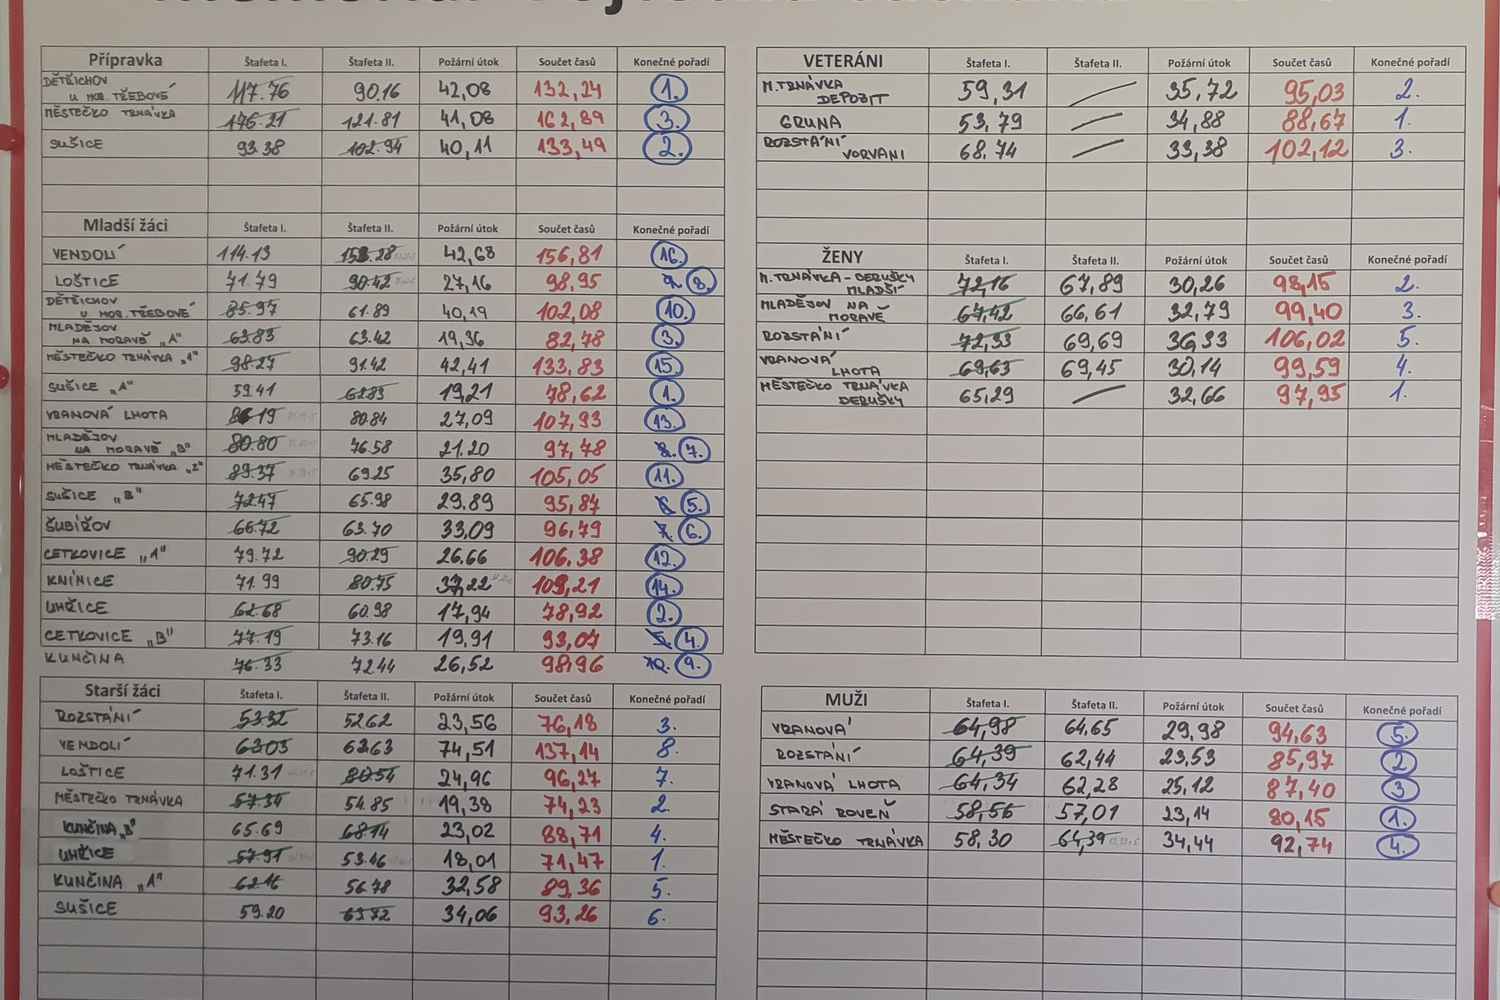 Přípravka Štafeta I. Štafeta II. Požární útok Součet časů Konečné pořadí
DĚTŘICHOV U MOR. TŘEBOVÉ 117.76 90.16 42,08 132,24 1.
MĚSTEČKO TRNÁVKA 176.21 121.81 41,08 162,89 3.
SUŠICE 93.38 102.94 40,11 133,49 2.
Mladší žáci Štafeta I. Štafeta II. Požární útok Součet časů Konečné pořadí
VENDOLÍ 114.13 153.28 42,68 156,81 16.
LOŠTICE 71.79 90.42 27,16 98,95 8.
DĚTŘICHOV U MOR. TŘEBOVÉ 85.97 61.89 40,19 102,08 10.
MLADĚJOV NA MORAVĚ „A" 63.83 63.42 19,36 82,78 3.
MĚSTEČKO TRNÁVKA „1" 98.27 91.42 42,41 133,83 15.
SUŠICE „A" 59.41 62.83 19,21 78,62 1.
VRANOVÁ LHOTA 86.19 80.84 27,09 107,93 13.
MLADĚJOV NA MORAVĚ „B" 80.80 76.58 21.20 97,78 8. 7.
MĚSTEČKO TRNÁVKA „2" 89.37 69.25 35,80 105,05 11.
SUŠICE „B" 72.47 65.98 29.89 95,87 6 5.
ŠUBÍŘOV 66.72 63.70 33,09 96,79 7. 6.
CETKOVICE „A" 79.72 90.29 26.66 106.38 12.
KNÍNICE 71.99 80.75 37,22 109,21 14.
UHŘICE 62.68 60.98 17,94 78,92 2.
CETKOVICE „B" 77.19 73.16 19,91 93,07 5. 4.
KUNČINA 76.33 72.44 26,52 98,96 10. 9.
Starší žáci Štafeta I. Štafeta II. Požární útok Součet časů Konečné pořadí
ROZSTÁNÍ 53.32 52.62 23,56 76,18 3.
VENDOLÍ 63.03 62.63 74,51 137,14 8.
LOŠTICE 71.31 80.54 24,96 96,27 7.
MĚSTEČKO TRNÁVKA 57.34 54.85 19,38 74,23 2.
KUNČINA „B" 65.69 68.14 23,02 88,71 4.
UHŘICE 57.91 53.46 18,01 71,47 1.
KUNČINA „A" 62.16 56.78 32,58 89,36 5.
SUŠICE 59.20 63.72 34,06 93,26 6.
VETERÁNI Štafeta I. Štafeta II. Požární útok Součet časů Konečné pořadí
M. TRNÁVKA DEPOZIT 59,31 35,72 95,03 2.
GRUNA 53,79 34,88 88,67 1.
ROZSTÁNÍ VORVANI 68.74 33,38 102,12 3.
ŽENY Štafeta I. Štafeta II. Požární útok Součet časů Konečné pořadí
M. TRNÁVKA - BERUŠKY MLADŠÍ 72,16 67,89 30,26 98,15 2.
MLADĚJOV NA MORAVĚ 67,42 66,61 32,79 99,40 3.
ROZSTÁNÍ 72,33 69,69 36,33 106,02 5.
VRANOVÁ LHOTA 69,63 69,45 30,14 99,59 4.
MĚSTEČKO TRNÁVKA BERUŠKY 65,29 32,66 97,95 1.
MUŽI Štafeta I. Štafeta II. Požární útok Součet časů Konečné pořadí
VRANOVÁ 64,98 64,65 29,98 94,63 5.
ROZSTÁNÍ 64,39 62,44 23,53 85,97 2
VRANOVÁ LHOTA 64,34 62,28 25,12 87,40 3
STARÁ ROVEŇ 58,56 57,01 23,14 80,15 1.
MĚSTEČKO TRNÁVKA 58,30 64,39 34,44 92,74 4.